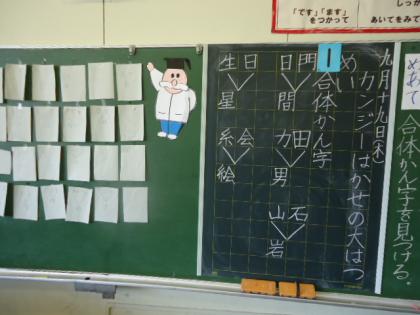 しっか
「です」「ます」
をつかって
あいてをみて
めあて
合体かん字を見つける。
九月十九日(木)
カンジーはかせの大はつ
めい
1
合体かん字
門 日
間
田 力
男
石 山
岩
日 生
星
会 糸
絵